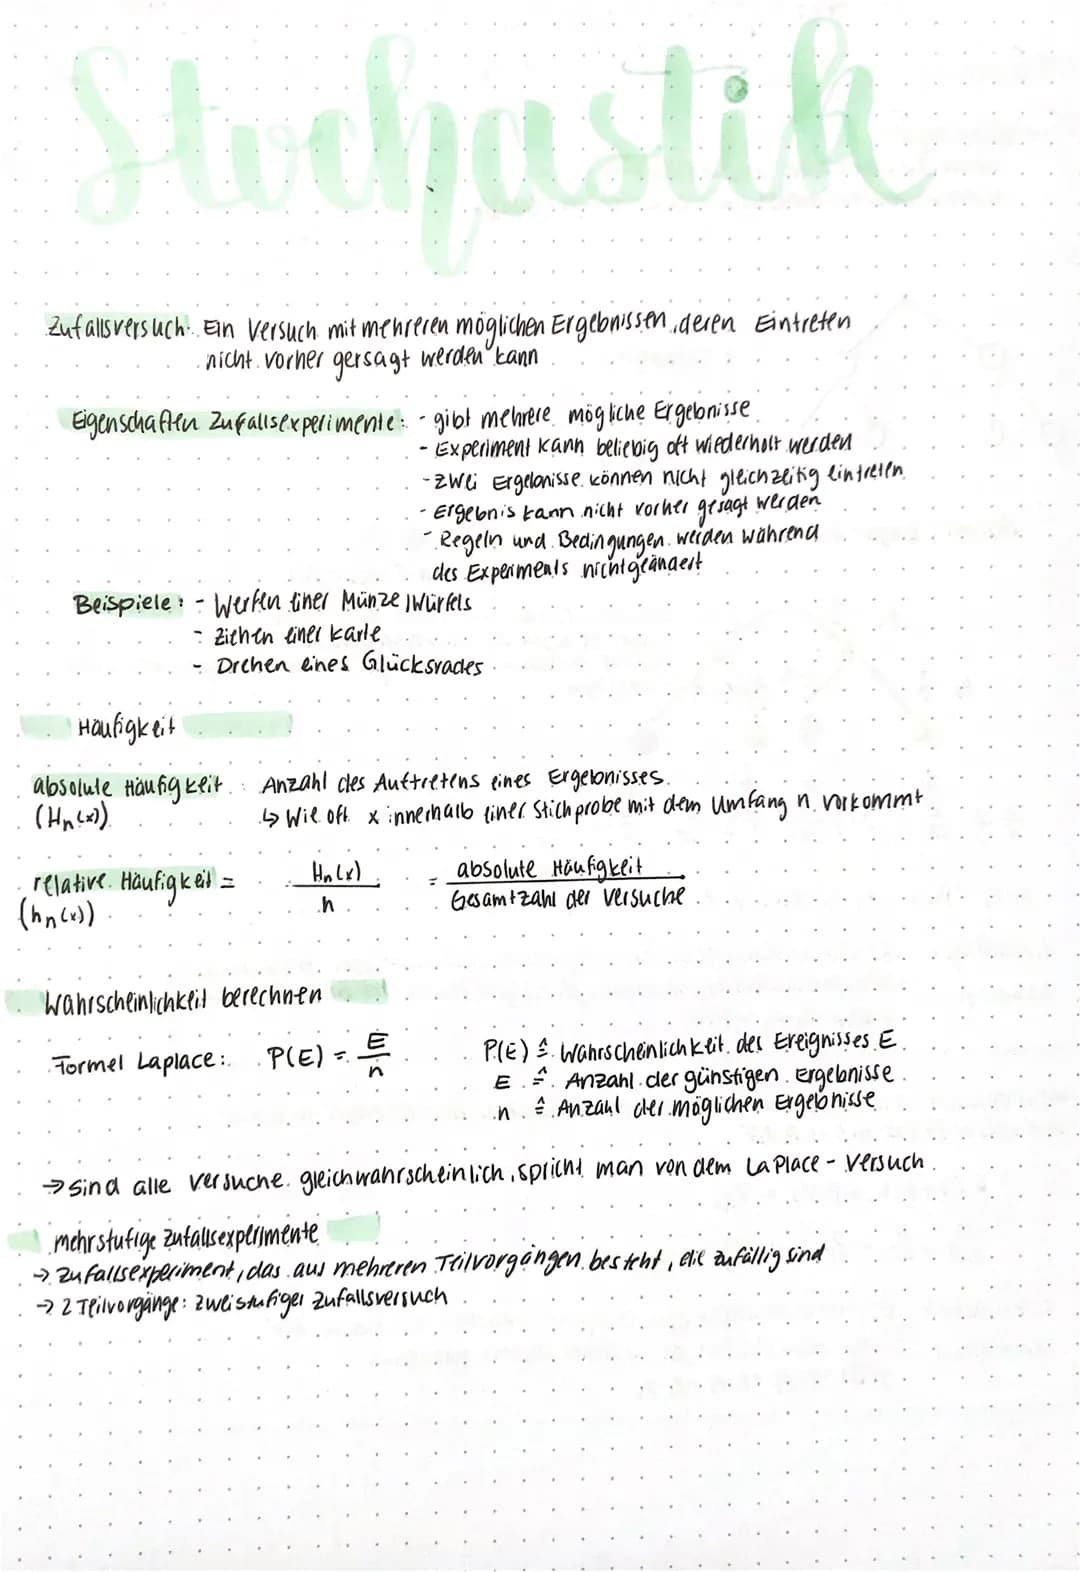 Stochastik
Zufallsversuch: Ein Versuch mit mehreren möglichen Ergebnissen, deren Eintreten
nicht vorher gersagt werden kann
Eigenschaften Zufallsexperimente: - gibt mehrere mögliche Ergebnisse
- Experiment kann beliebig oft wiederholt werden
- zwei Ergebnisse können nicht gleichzeitig eintreten
- Ergebnis kann nicht vorher gesagt werden
- Regeln und Bedingungen werden während
des Experiments nicht geändert
Beispiele: - Werfen einer Münze / Würfels
- Ziehen einer Karte
- Drehen eines Glücksrades
Häufigkeit
absolute Häufigkeit : Anzahl des Auftretens eines Ergebnisses.
(Hn(x)) ↳ Wie oft x innerhalb einer Stichprobe mit dem Umfang n vorkommt
relative Häufigkeit = Hn(x) / n = absolute Häufigkeit / Gesamtzahl der Versuche
(hn(x))
Wahrscheinlichkeit berechnen
Formel Laplace: P(E) = E / n P(E) ≙ Wahrscheinlichkeit des Ereignisses E
E ≙ Anzahl der günstigen Ergebnisse
n ≙ Anzahl der möglichen Ergebnisse
→ sind alle Versuche gleichwahrscheinlich, spricht man von dem LaPlace - Versuch
mehrstufige Zufallsexperimente
→ Zufallsexperiment, das aus mehreren Teilvorgängen besteht, die zufällig sind
→ 2 Teilvorgänge: zweistufiger Zufallsversuch